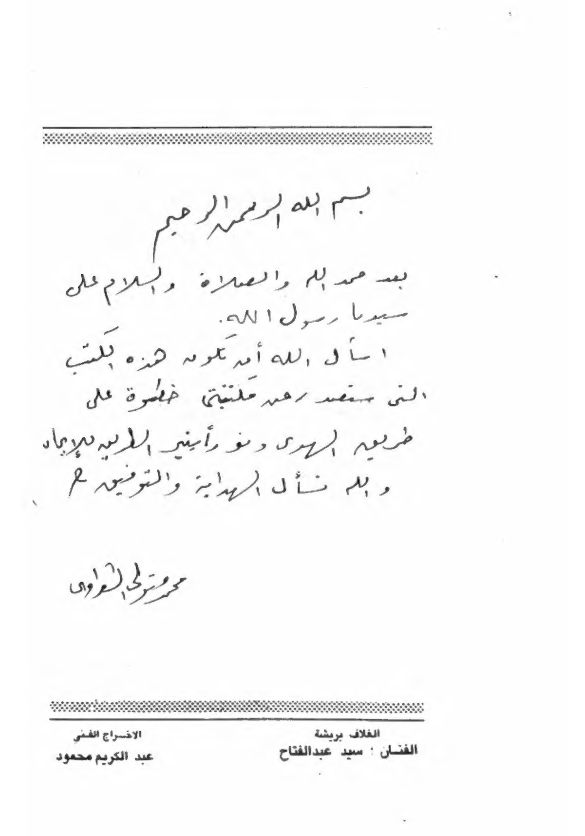 بسم الله الرحمن الرحيم
بعد حمد الله والصلاة والسلام على
سيدنا رسول الله.
اسأل الله أن تكون هذه الكتب
التى ستصدر عن مكتبتى خطوة على
طريق الهدى ونورا ينير الطريق للإيمان
والله نسأل الهداية والتوفيق
محمد متولى الشعراوى
الغلاف بريشة
الفنـان : سيد عبدالفتاح
الاخـراج الفنى
عبد الكريم محمود